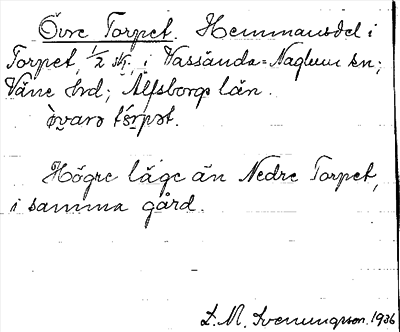 Övre Torpet. Hemmansdel i
Torpet, 1/2 skf., i Vassända-Naglum sn;
Väne hrd; Älfsborgs län.
ȯ̀varə tɵ́rpət.
Högre läge än Nedre Torpet,
i samma gård.
L. M. Svenungsson. 1936